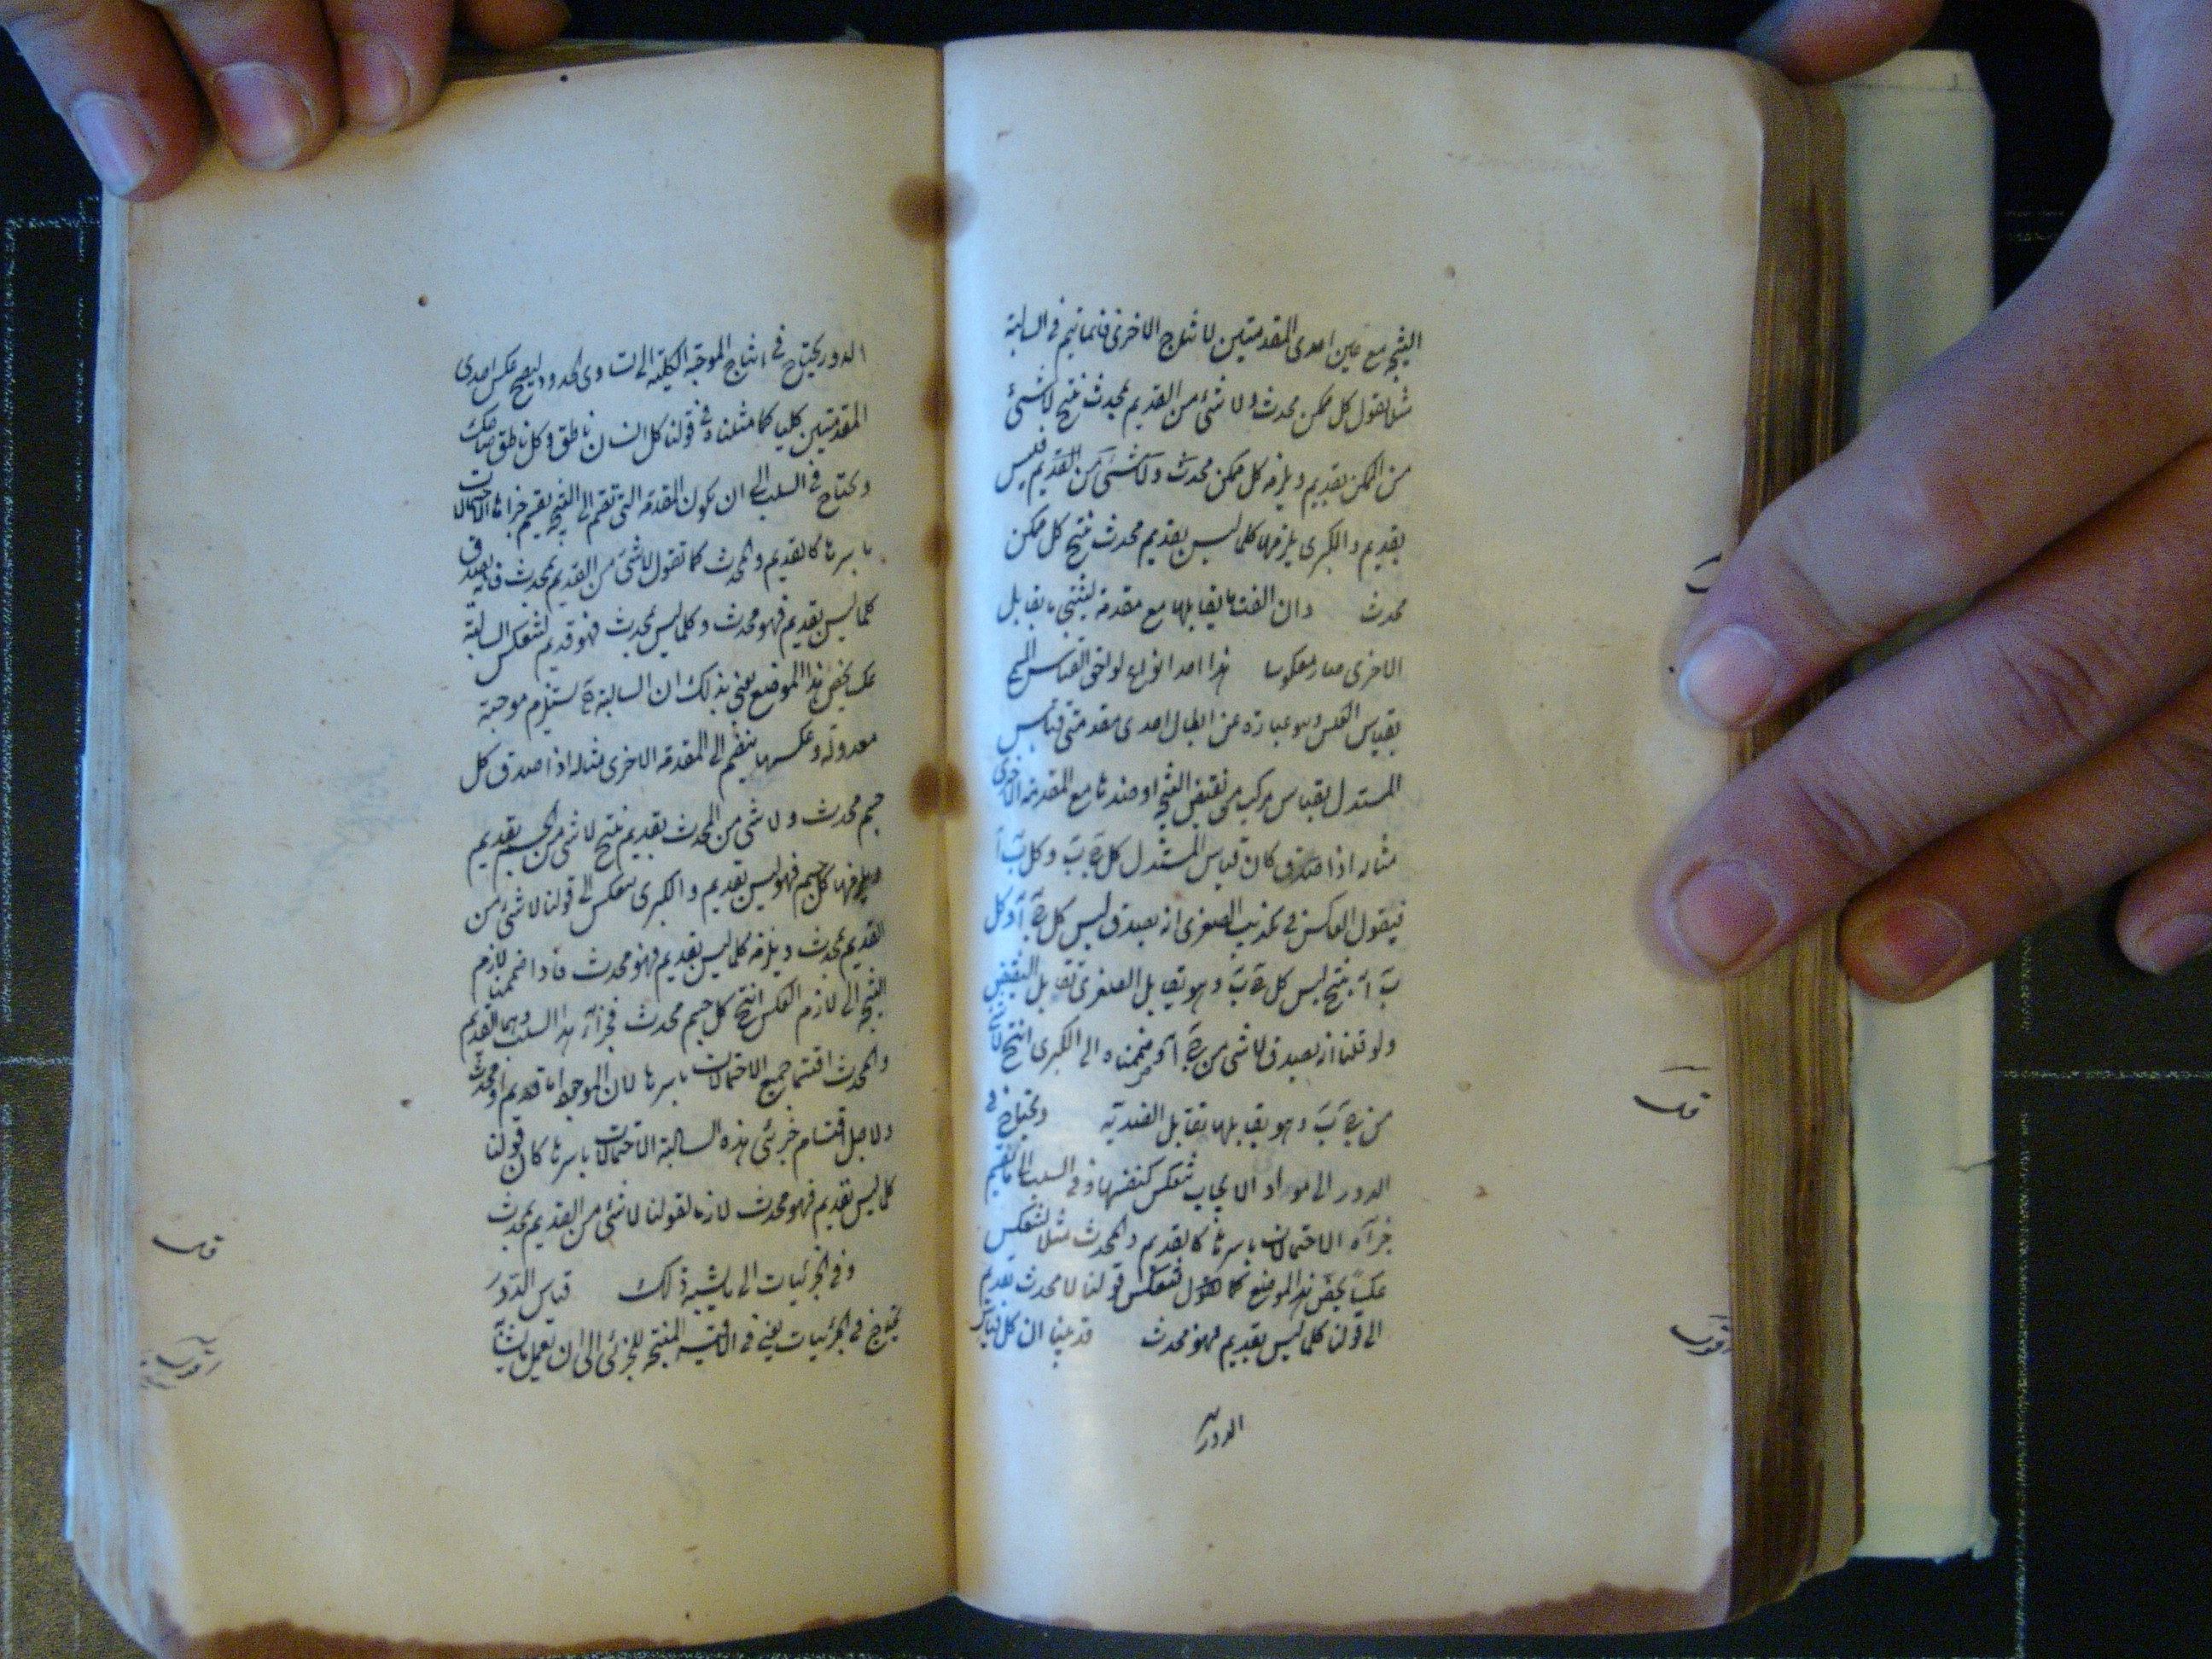 النتيجة مع عين احدى المقدمتين لانتاج الاخرى فانما تتم في السالبة
مثلا يقول كل ممكن محدث ولا شئ من القديم بمحدث ينتج لا شئ
من الممكن بقديم ويلزمه كل ممكن محدث ولا شئ من القديم فليس
بقديم والكبرى يلزمها كلما ليس بقديم محدث ينتج كل ممكن
محدث وان الفت ما يقابلها مع مقدمة لينتج ما يقابل
الاخرى صار معكوسا هذا احد انواع لواحق القياس المسمى
بقياس العكس وهو عبارة عن ابطال احدى مقدمتي قياس
المستدل بقياس مركب من نقيض النتيجة او ضدها مع المقدمة الاخرى
مثاله اذا كان قياس المستدل كل ج ب وكل ب آ
فيقول العاكس في تكذيب الصغرى انه يصدق ليس كل ج آ وكل
ب آ ينتج ليس كل ج ب وهو يقابل الصغرى تقابل النقيض
ولو قلنا انه يصدق لا شئ من ج آ وضممناه الى الكبرى انتج لا شئ
من ج ب وهو يقابلها تقابل الضدية ويحتاج في
الدور الى مواد الايجاب تنعكس كنفسها وفي السلب الى ما تقسم
جزآه الاحتمالات باسرها كالقديم والمحدث مثلا لتنعكس
عكسا يخص هذا الموضع كما فتعكس قولنا لا محدث بقديم
الى قولنا كلما ليس بقديم فهو محدث قد بينا ان كل قياس
الدور
قوله
قوله
الدور يحتاج في انتاج الموجبة الكلية الى تساوى الحدود ليصح عكس احدى
المقدمتين كليا كما مثلنا في قولنا كل انسان ناطق وكل ناطق ضاحك
ويحتاج في السلب الى ان يكون المقدمة التى تضم الى النتيجة يقتسم جزاها الاحتمالات
باسرها كالقديم والمحدث كما تقول لا شئ من القديم بمحدث فانه يصدق
كلما ليس بقديم فهو محدث وكلما ليس بمحدث فهو قديم لتنعكس السالبة
عكسا يخص هذا الموضع يعنى بذلك ان السالبة تستلزم موجبة
معدولة وعكسها ينضم الى المقدمة الاخرى مثاله اذا صدق كل
جسم محدث ولا شئ من المحدث بقديم ينتج لا شئ من الجسم بقديم
ويلزمها كل جسم فهو ليس بقديم والكبرى تنعكس الى قولنا لا شئ من
القديم بمحدث ويلزمه كلما ليس بقديم فهو محدث فاذا ضممنا لازم
النتيجة الى لازم العكس انتج كل جسم محدث فجزآ هذا السلب وهما القديم
والمحدث اقتسما جميع الاحتمالات باسرها لان الموجود اما قديم او محدث
ولاجل اقتسام جزئى هذه السالبة الاحتمالات باسرها كان قولنا
كلما ليس بقديم فهو محدث لازما لقولنا لا شئ من القديم بمحدث
وفي الجزئيات الى ما يشبه ذلك قياس الدور
يحتاج في الجزئيات يعنى في الاقيسة المنتجة للجزئى الى ان تعمل ما يشبه
قوله